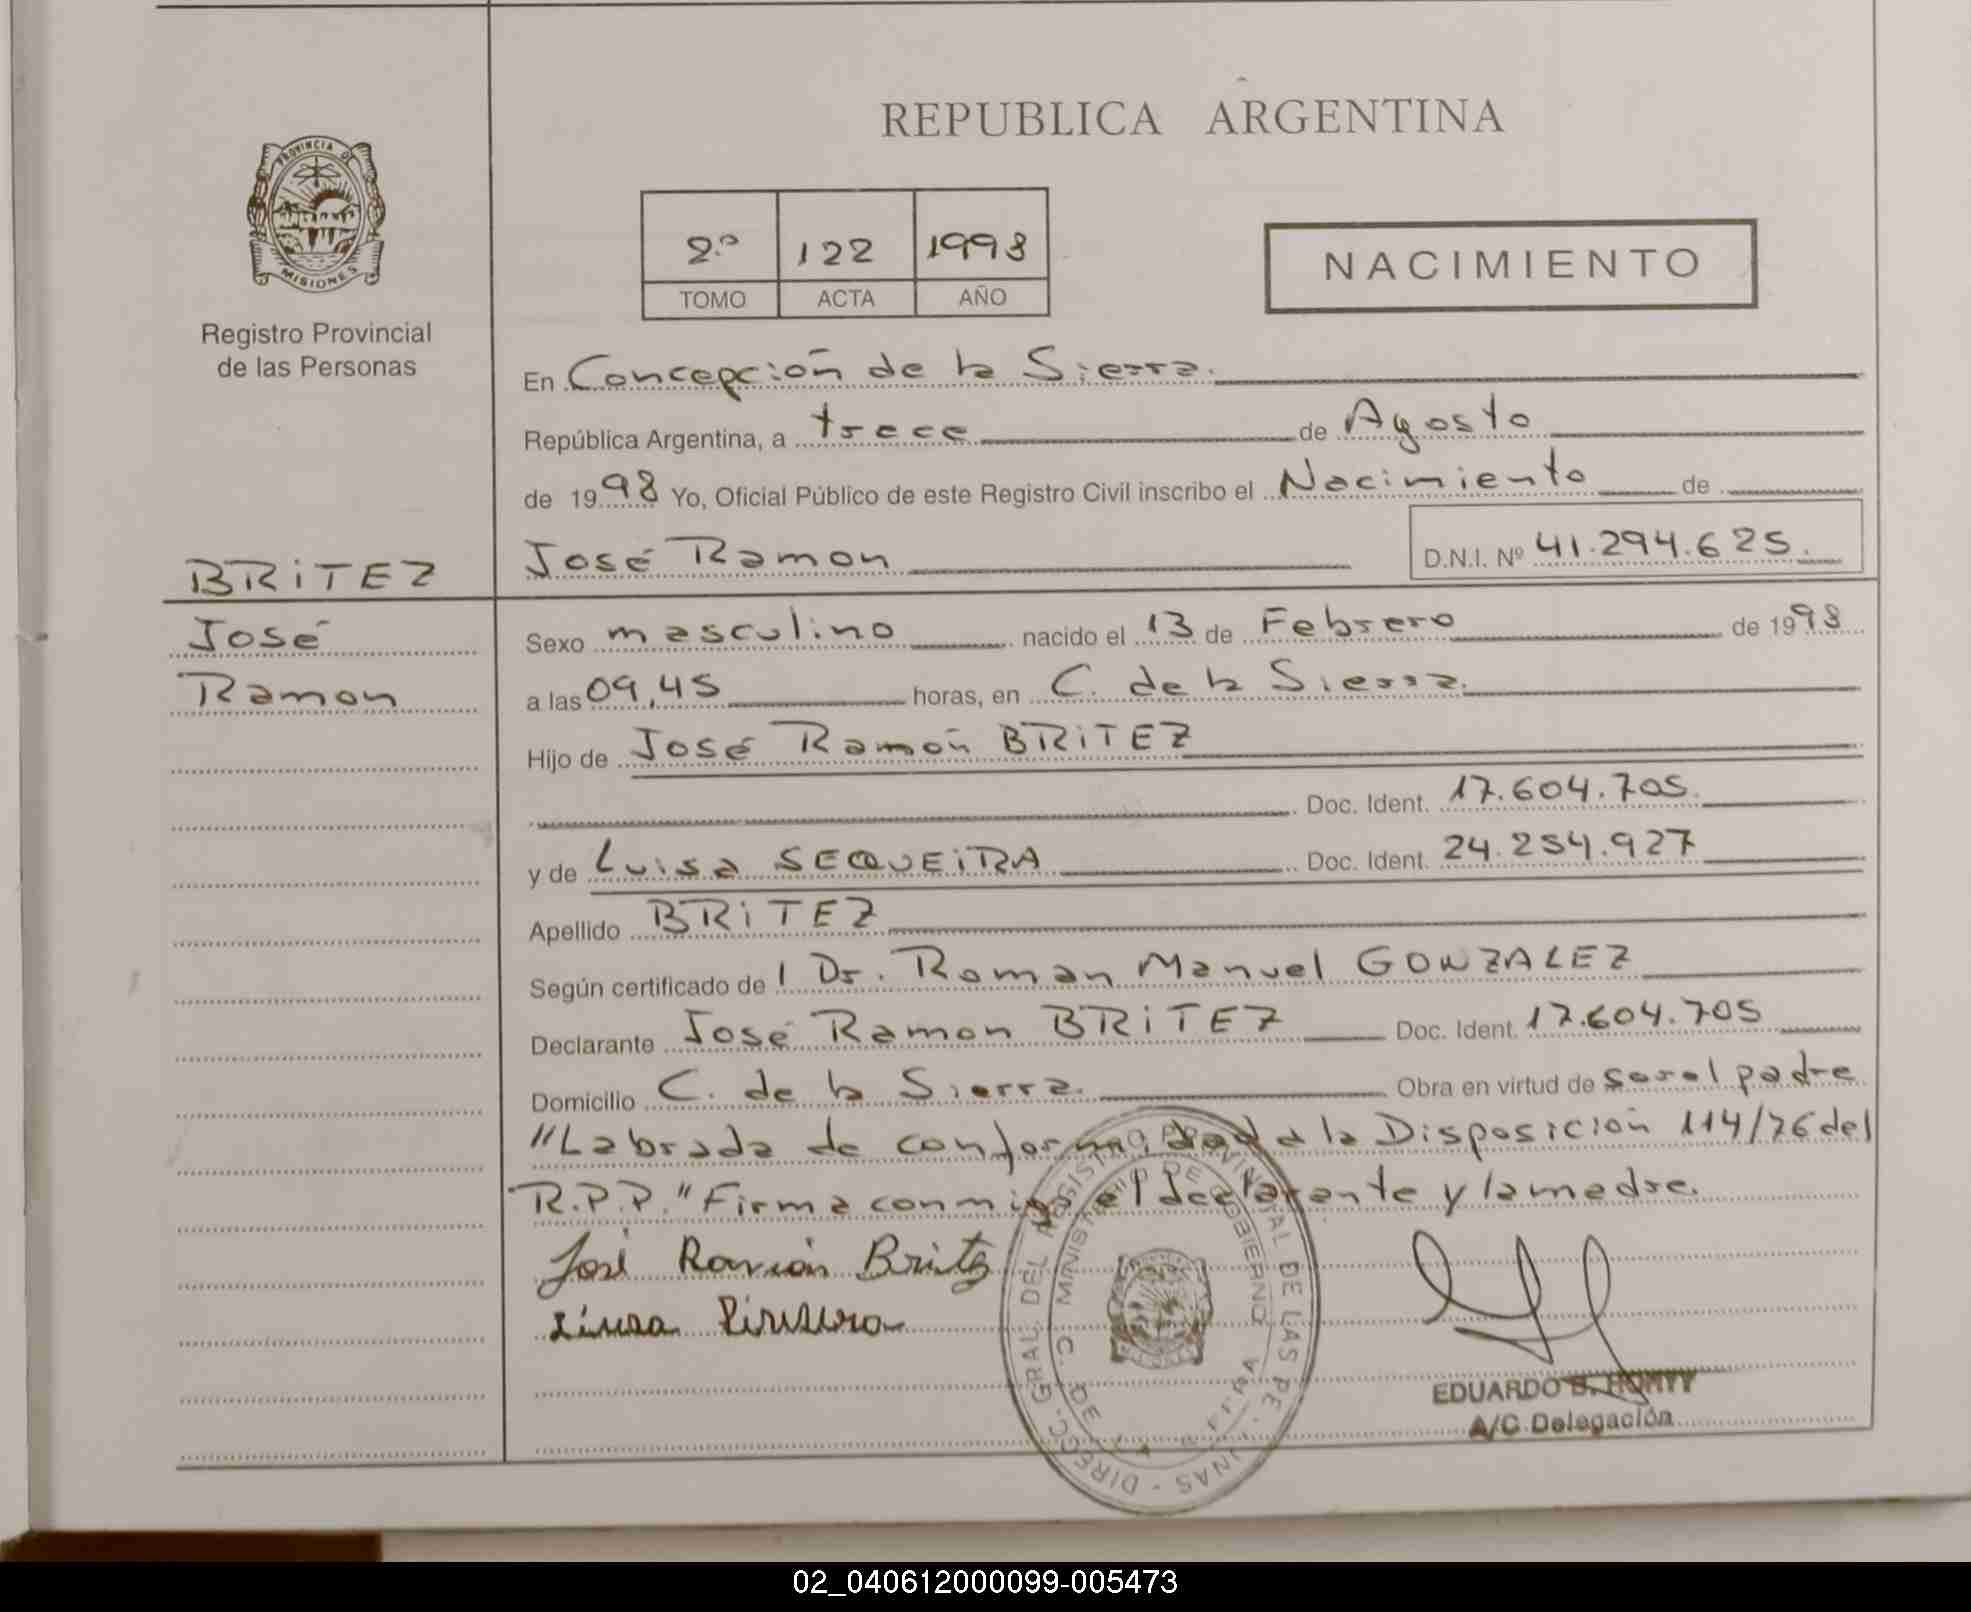 REPUBLICA ARGENTINA
PROVINCIA DE
MISIONES
Registro Provincial
de las Personas
2º 122 1998
TOMO ACTA AÑO
NACIMIENTO
En Concepción de la Sierra.
República Argentina, a trece de Agosto
de 1998 Yo, Oficial Público de este Registro Civil inscribo el Nacimiento de
BRITEZ José Ramon D.N.I. Nº 41.294.625.
José
Ramon
Sexo masculino nacido el 13 de Febrero de 1998
a las 09,45 horas, en C. de la Sierra.
Hijo de José Ramón BRITEZ
Doc. Ident. 17.604.705.
y de Luisa SEQUEIRA Doc. Ident. 24.254.927
Apellido BRITEZ
Según certificado de l Dr. Roman Manuel GONZALEZ
Declarante José Ramon BRITEZ Doc. Ident. 17.604.705
Domicilio C. de la Sierra. Obra en virtud de ser el padre
"Labrada de conformidad a la Disposición 114/76 del
R.P.P." Firma conmigo el declarante y la madre.
José Ramón Britez
EDUARDO
A/C Delegación
DIREC. GRAL. DEL REGISTRO PROVINCIAL DE LAS PE
MINISTERIO DE GOBIERNO
02_040612000099-005473